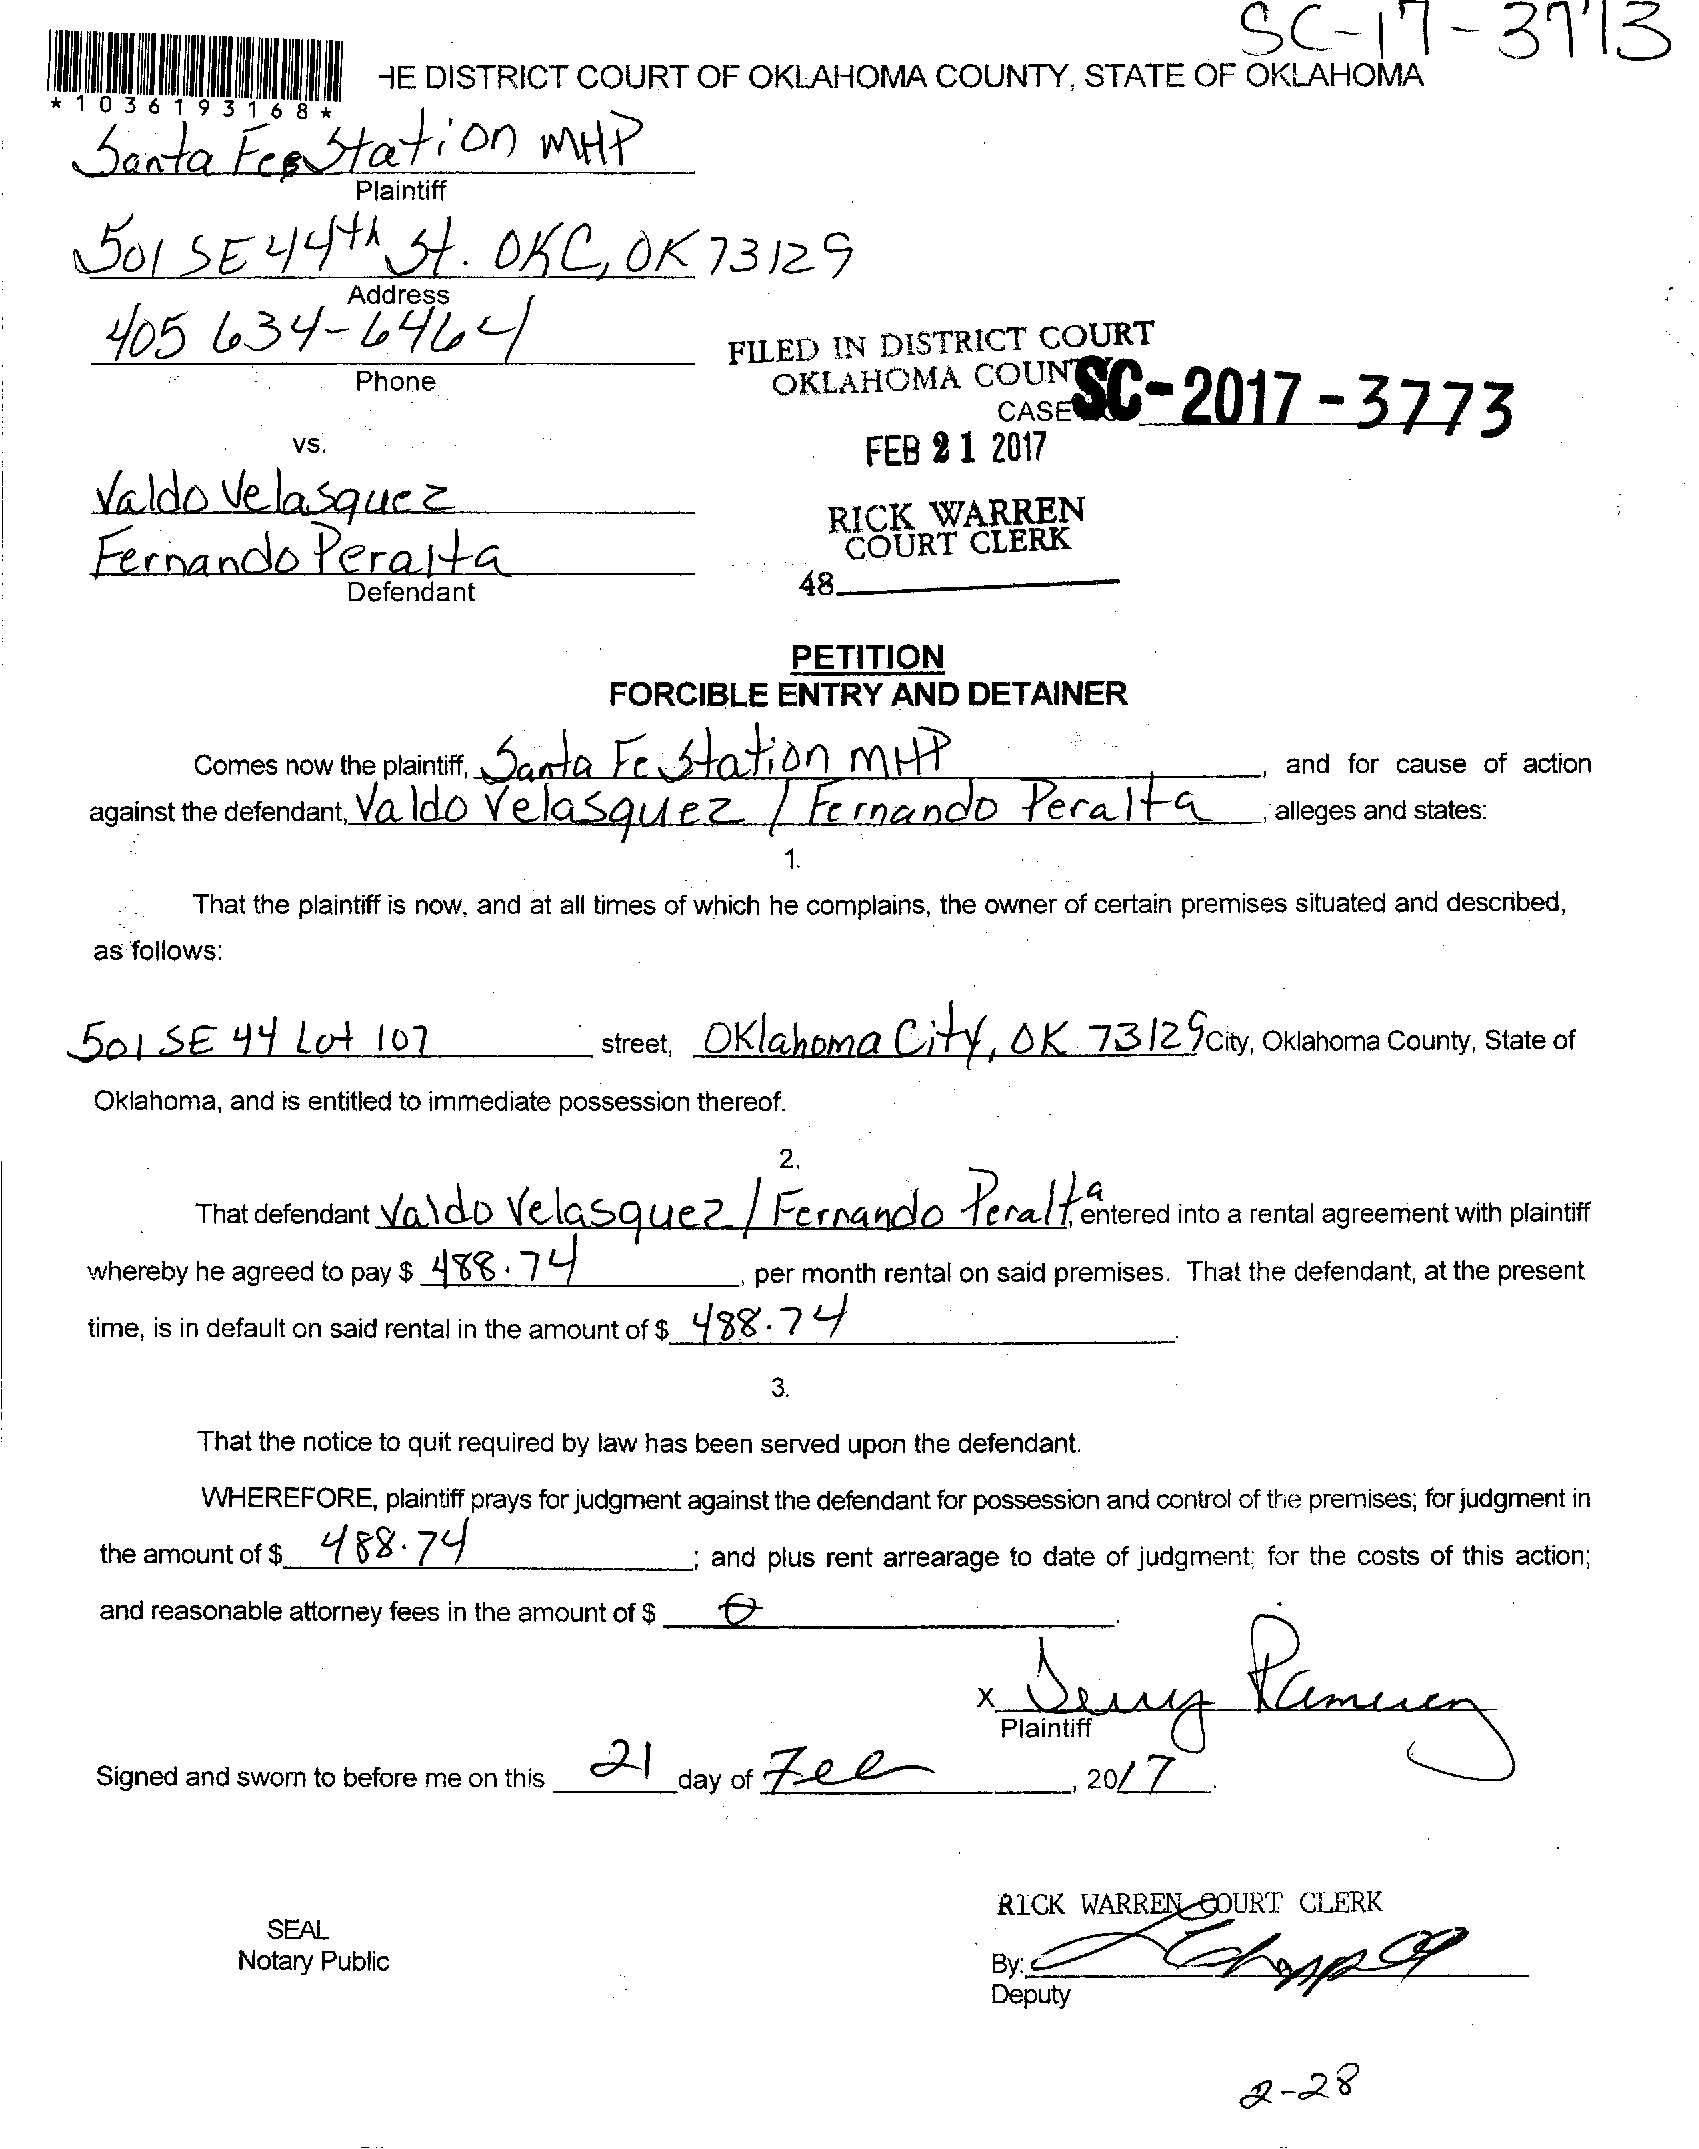 SC-17-3773
*1036193168*
HE DISTRICT COURT OF OKLAHOMA COUNTY, STATE OF OKLAHOMA
Santa Fe Station MHP
Plaintiff
501 SE 44th St. OKC, OK 73129
Address
405 634-6464
Phone
FILED IN DISTRICT COURT
OKLAHOMA COUN
CASE SC-2017-3773
FEB 21 2017
vs.
Valdo Velasquez
RICK WARREN
COURT CLERK
Fernando Peralta
Defendant
48
PETITION
FORCIBLE ENTRY AND DETAINER
Comes now the plaintiff, Santa Fe Station MHP, and for cause of action
against the defendant, Valdo Velasquez / Fernando Peralta, alleges and states:
1.
That the plaintiff is now, and at all times of which he complains, the owner of certain premises situated and described,
as follows:
501 SE 44 Lot 107 street, Oklahoma City, OK 73129 City, Oklahoma County, State of
Oklahoma, and is entitled to immediate possession thereof.
2.
That defendant Valdo Velasquez / Fernando Peralta, entered into a rental agreement with plaintiff
whereby he agreed to pay $ 488.74, per month rental on said premises. That the defendant, at the present
time, is in default on said rental in the amount of $ 488.74.
3.
That the notice to quit required by law has been served upon the defendant.
WHEREFORE, plaintiff prays for judgment against the defendant for possession and control of the premises; for judgment in
the amount of $ 488.74; and plus rent arrearage to date of judgment; for the costs of this action;
and reasonable attorney fees in the amount of $ 0.
x
Plaintiff
Signed and sworn to before me on this 21 day of Feb, 2017.
RICK WARREN COURT CLERK
SEAL
Notary Public
By:
Deputy
2-28